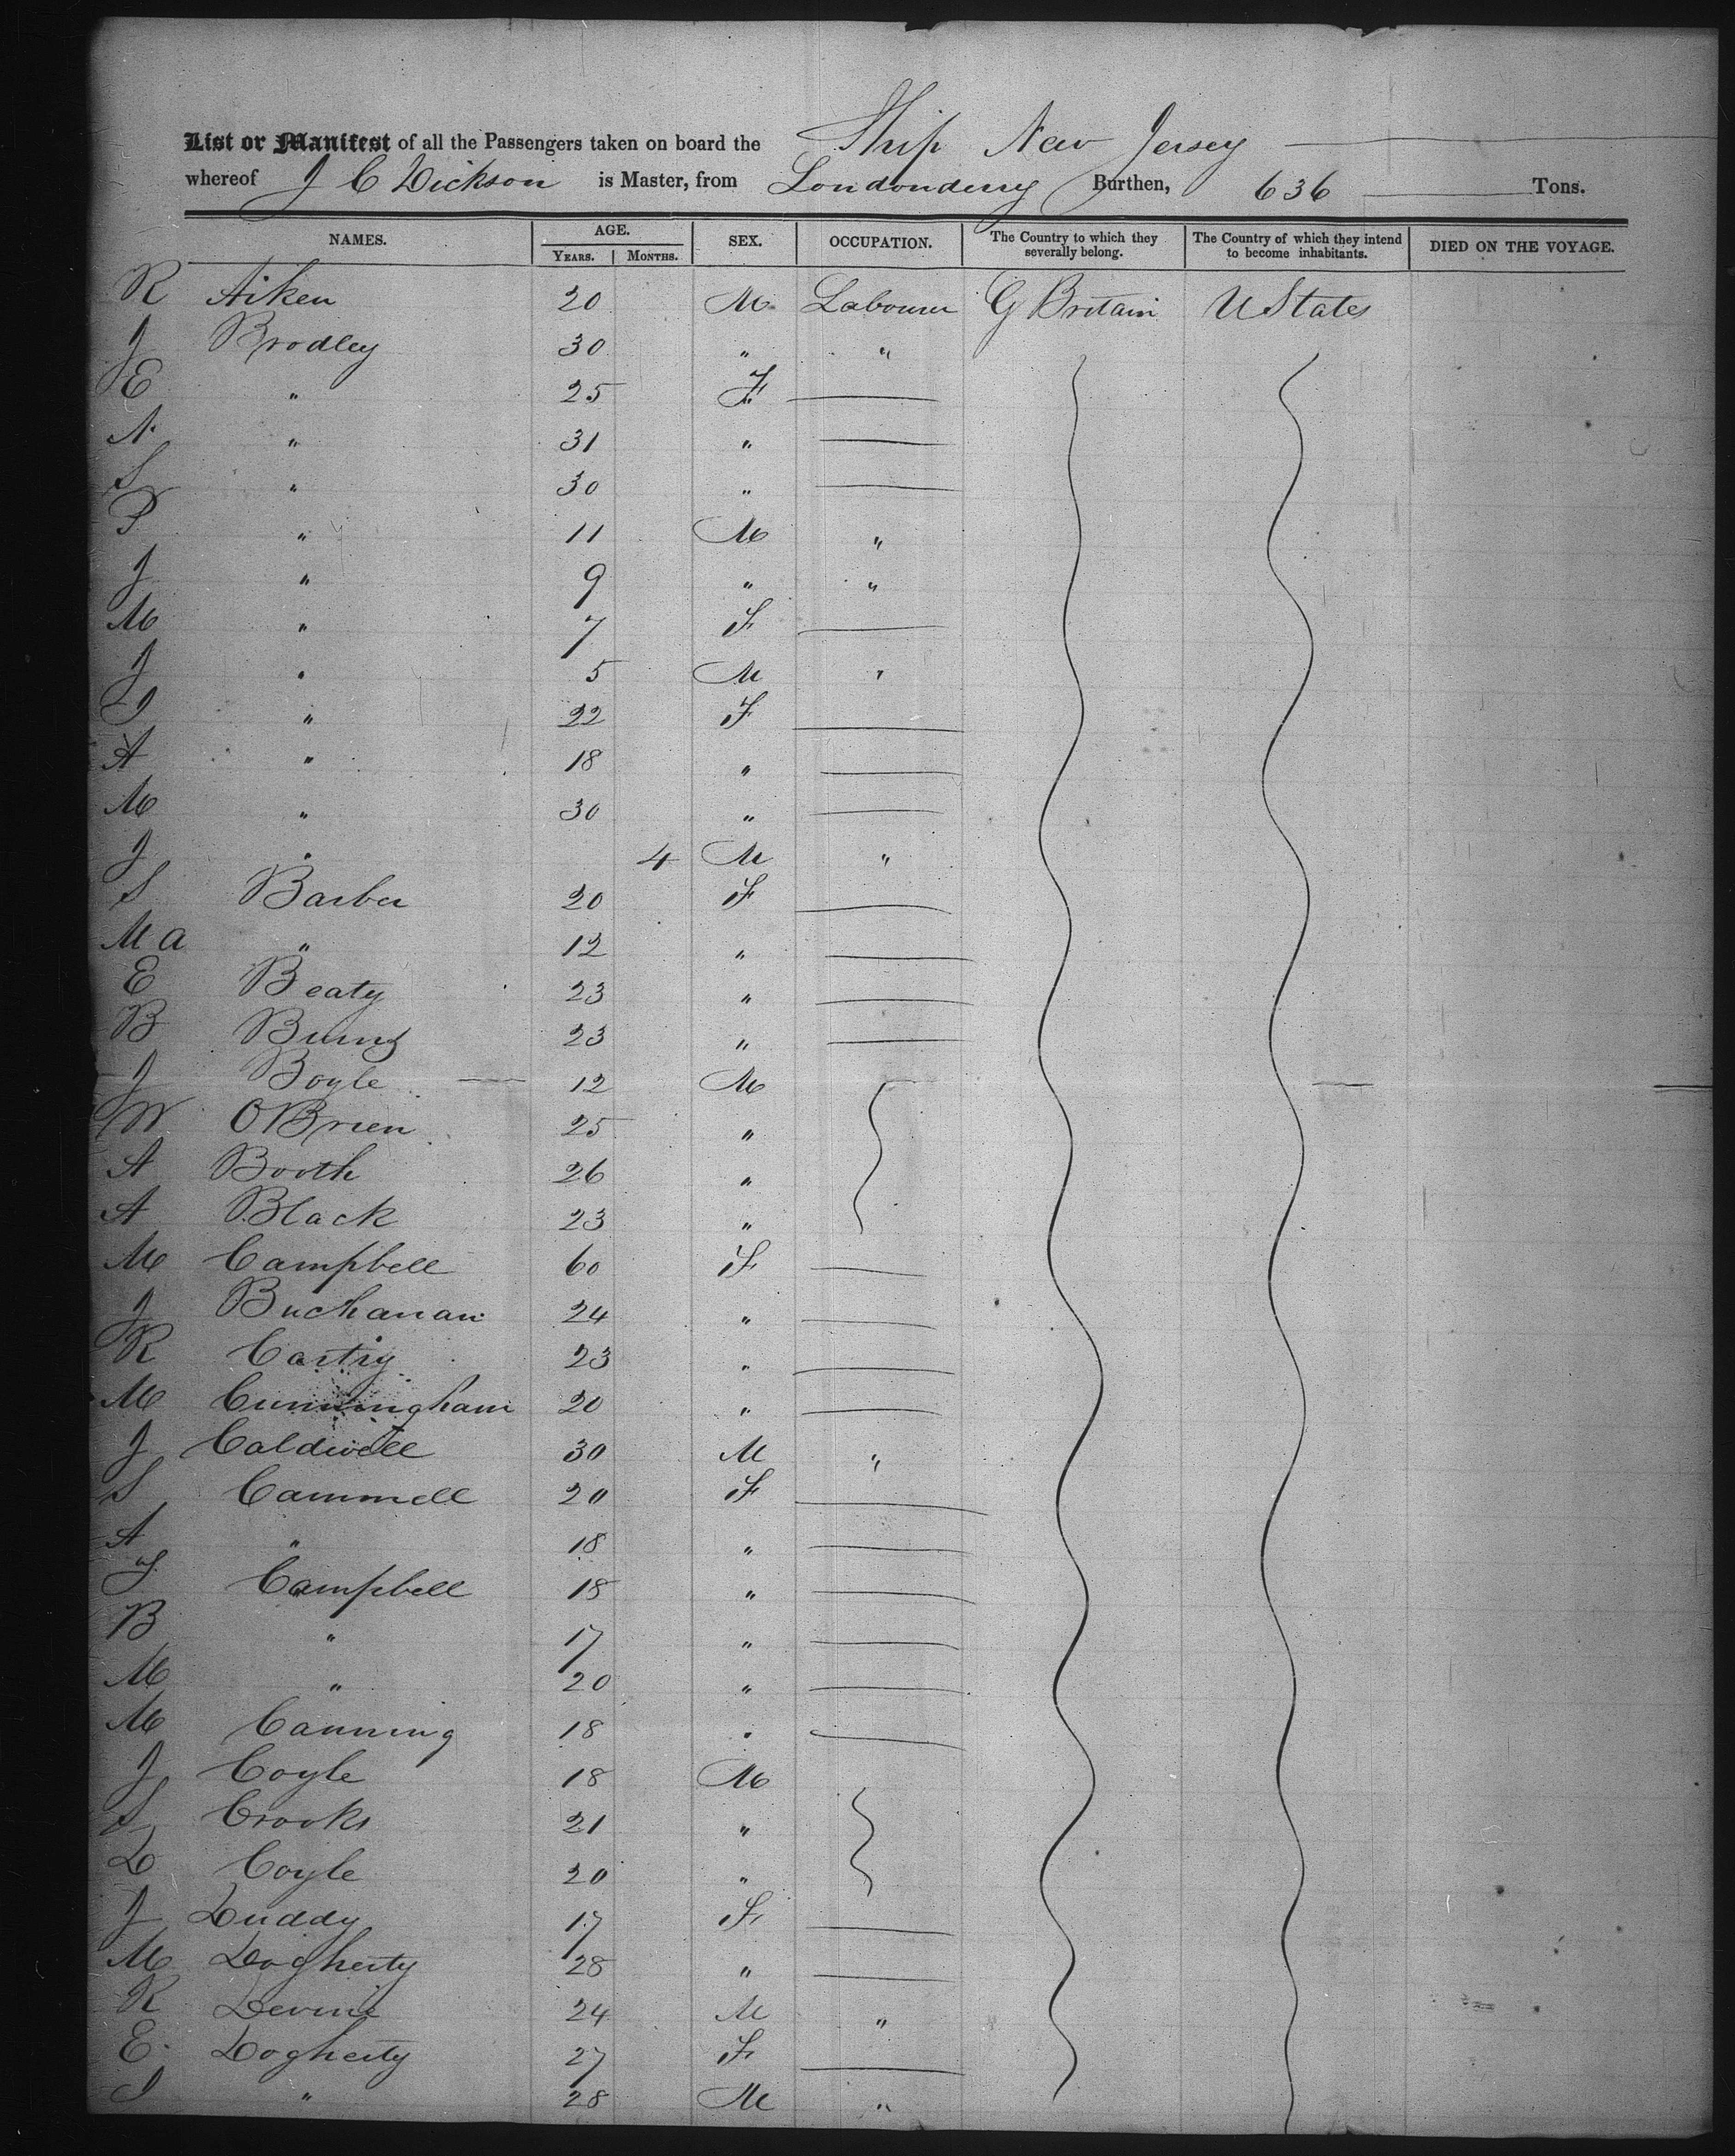 List or Manifest of all the Passengers taken on board the Ship New Jersey
whereof J C Dickson is Master, from Londonderry Burthen, 636 Tons.
NAMES. AGE. SEX. OCCUPATION. The Country to which they severally belong. The Country of which they intend to become inhabitants. DIED ON THE VOYAGE.
YEARS. MONTHS.
R Aiken 20 M Labourer G Britain U States
J Brodley 30 " "
E " 25 F
N " 31 "
S " 30 "
P " 11 M "
J " 9 " "
M " 7 F
J " 5 M "
" 22 F
A " 18 "
M " 30 "
J " 4 M "
S Barber 20 F
M a " 12 "
E Beaty 23 "
B Burns 23 "
J Boyle 12 M
W OBrien 25 "
A Booth 26 "
A Black 23 "
M Campbell 60 F
J Buchanan 24 "
R Carty 23 "
M Cunningham 20 "
J Caldwell 30 M "
S Cammell 20 F
A " 18 "
Campbell 18 "
B " 17 "
M " 20 "
M Canning 18 "
J Coyle 18 M
S Crooks 21 "
D Coyle 20 "
J Duddy 17 F
M Dogherty 28 "
R Devine 24 M "
E Dogherty 27 F
" 28 M "